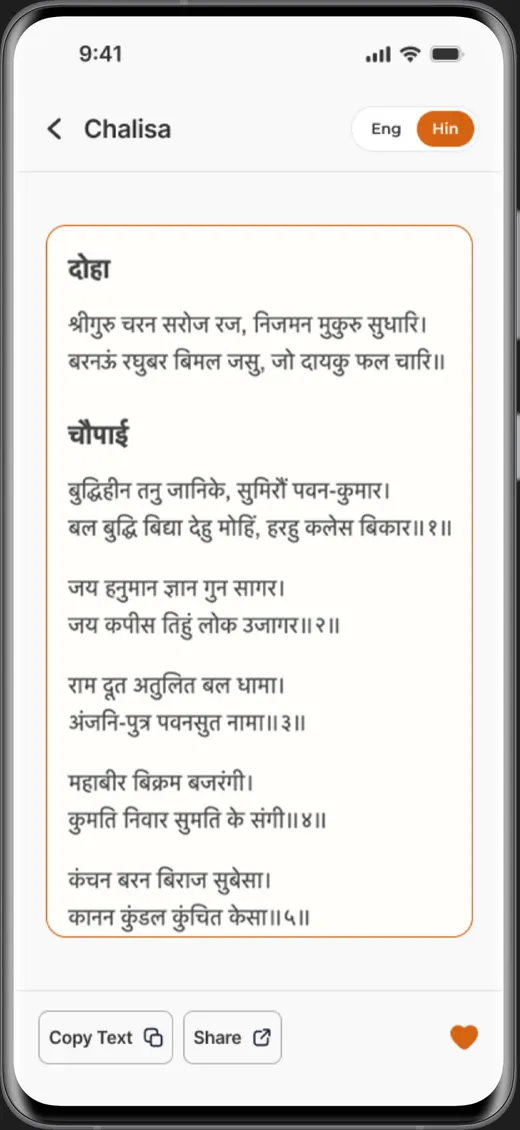 9:41
Chalisa
Eng Hin
दोहा
श्रीगुरु चरन सरोज रज, निजमन मुकुरु सुधारि।
बरनऊं रघुबर बिमल जसु, जो दायकु फल चारि॥
चौपाई
बुद्धिहीन तनु जानिके, सुमिरौं पवन-कुमार।
बल बुद्धि बिद्या देहु मोहिं, हरहु कलेस बिकार॥१॥
जय हनुमान ज्ञान गुन सागर।
जय कपीस तिहुं लोक उजागर॥२॥
राम दूत अतुलित बल धामा।
अंजनि-पुत्र पवनसुत नामा॥३॥
महाबीर बिक्रम बजरंगी।
कुमति निवार सुमति के संगी॥४॥
कंचन बरन बिराज सुबेसा।
कानन कुंडल कुंचित केसा॥५॥
Copy Text Share